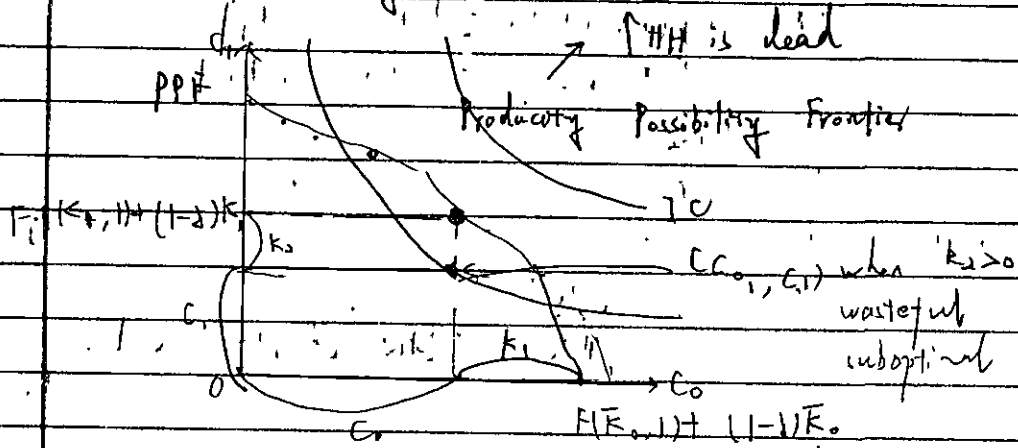 HH is dead
PPF
Producity Possibility Frontier
IC
F(K₁,1)+(1-δ)K₁
k₂
(C₀, C₁) when k₂>0
wasteful
suboptimal
C₁
k₁
0
C₀
C₀
F(K̄₀,1)+(1-δ)K̄₀